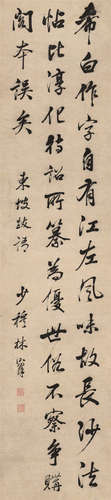 希白作字自有江左風味故長沙法
帖比淳化待詔所摹為優世俗不察爭購
閣本誤矣
東坡跋語
少穆林